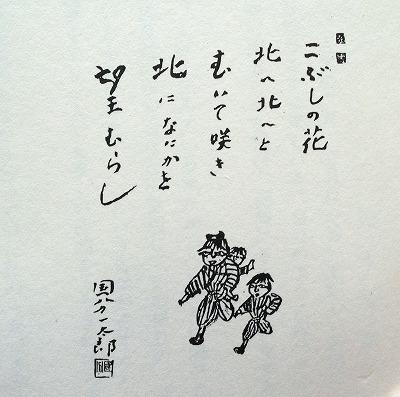 こぶしの花
北へ北へと
むいて咲き
北になにかを
望むらし
国分一太郎